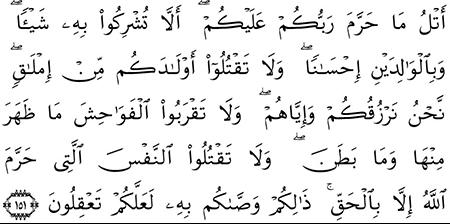 أَتْلُ مَا حَرَّمَ رَبُّكُمْ عَلَيْكُمْ ۖ أَلَّا تُشْرِكُوا۟ بِهِۦ شَيْـًٔا ۖ
وَبِٱلْوَٰلِدَيْنِ إِحْسَـٰنًا ۖ وَلَا تَقْتُلُوٓا۟ أَوْلَـٰدَكُم مِّنْ إِمْلَـٰقٍ ۖ
نَّحْنُ نَرْزُقُكُمْ وَإِيَّاهُمْ ۖ وَلَا تَقْرَبُوا۟ ٱلْفَوَٰحِشَ مَا ظَهَرَ
مِنْهَا وَمَا بَطَنَ ۖ وَلَا تَقْتُلُوا۟ ٱلنَّفْسَ ٱلَّتِى حَرَّمَ
ٱللَّهُ إِلَّا بِٱلْحَقِّ ۚ ذَٰلِكُمْ وَصَّىٰكُم بِهِۦ لَعَلَّكُمْ تَعْقِلُونَ ﴿١٥١﴾